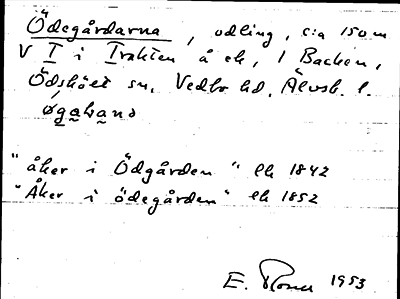 Ödegårdarna, odling, c:a 150 m
V I i Trakten å ek, 1 Backen,
Ödskölt sn, Vedbo hd, Älvsb. l.
"åker i Ödgården" lk 1842
"Åker i ödegården" lk 1852
E. 1953